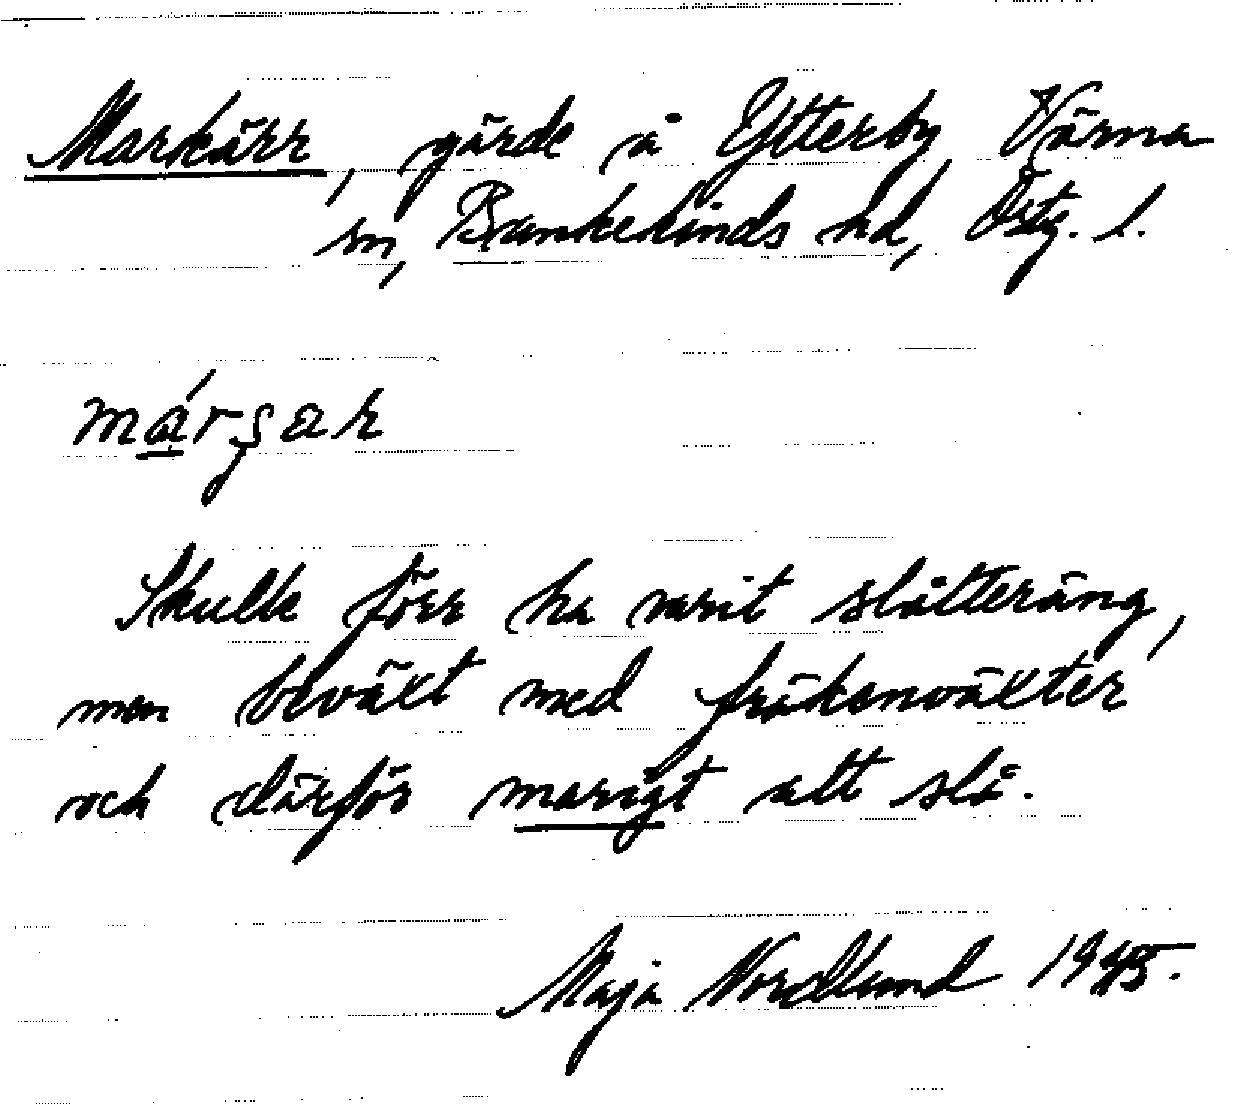 Markärr, gärde å Ytterby, Värna
sn, Bankekinds hd, Östg. l.
Skulle förr ha varit slåtteräng,
men beväxt med fräkenväxter
och därför marigt att slå.
Maja Nordlund 1945.